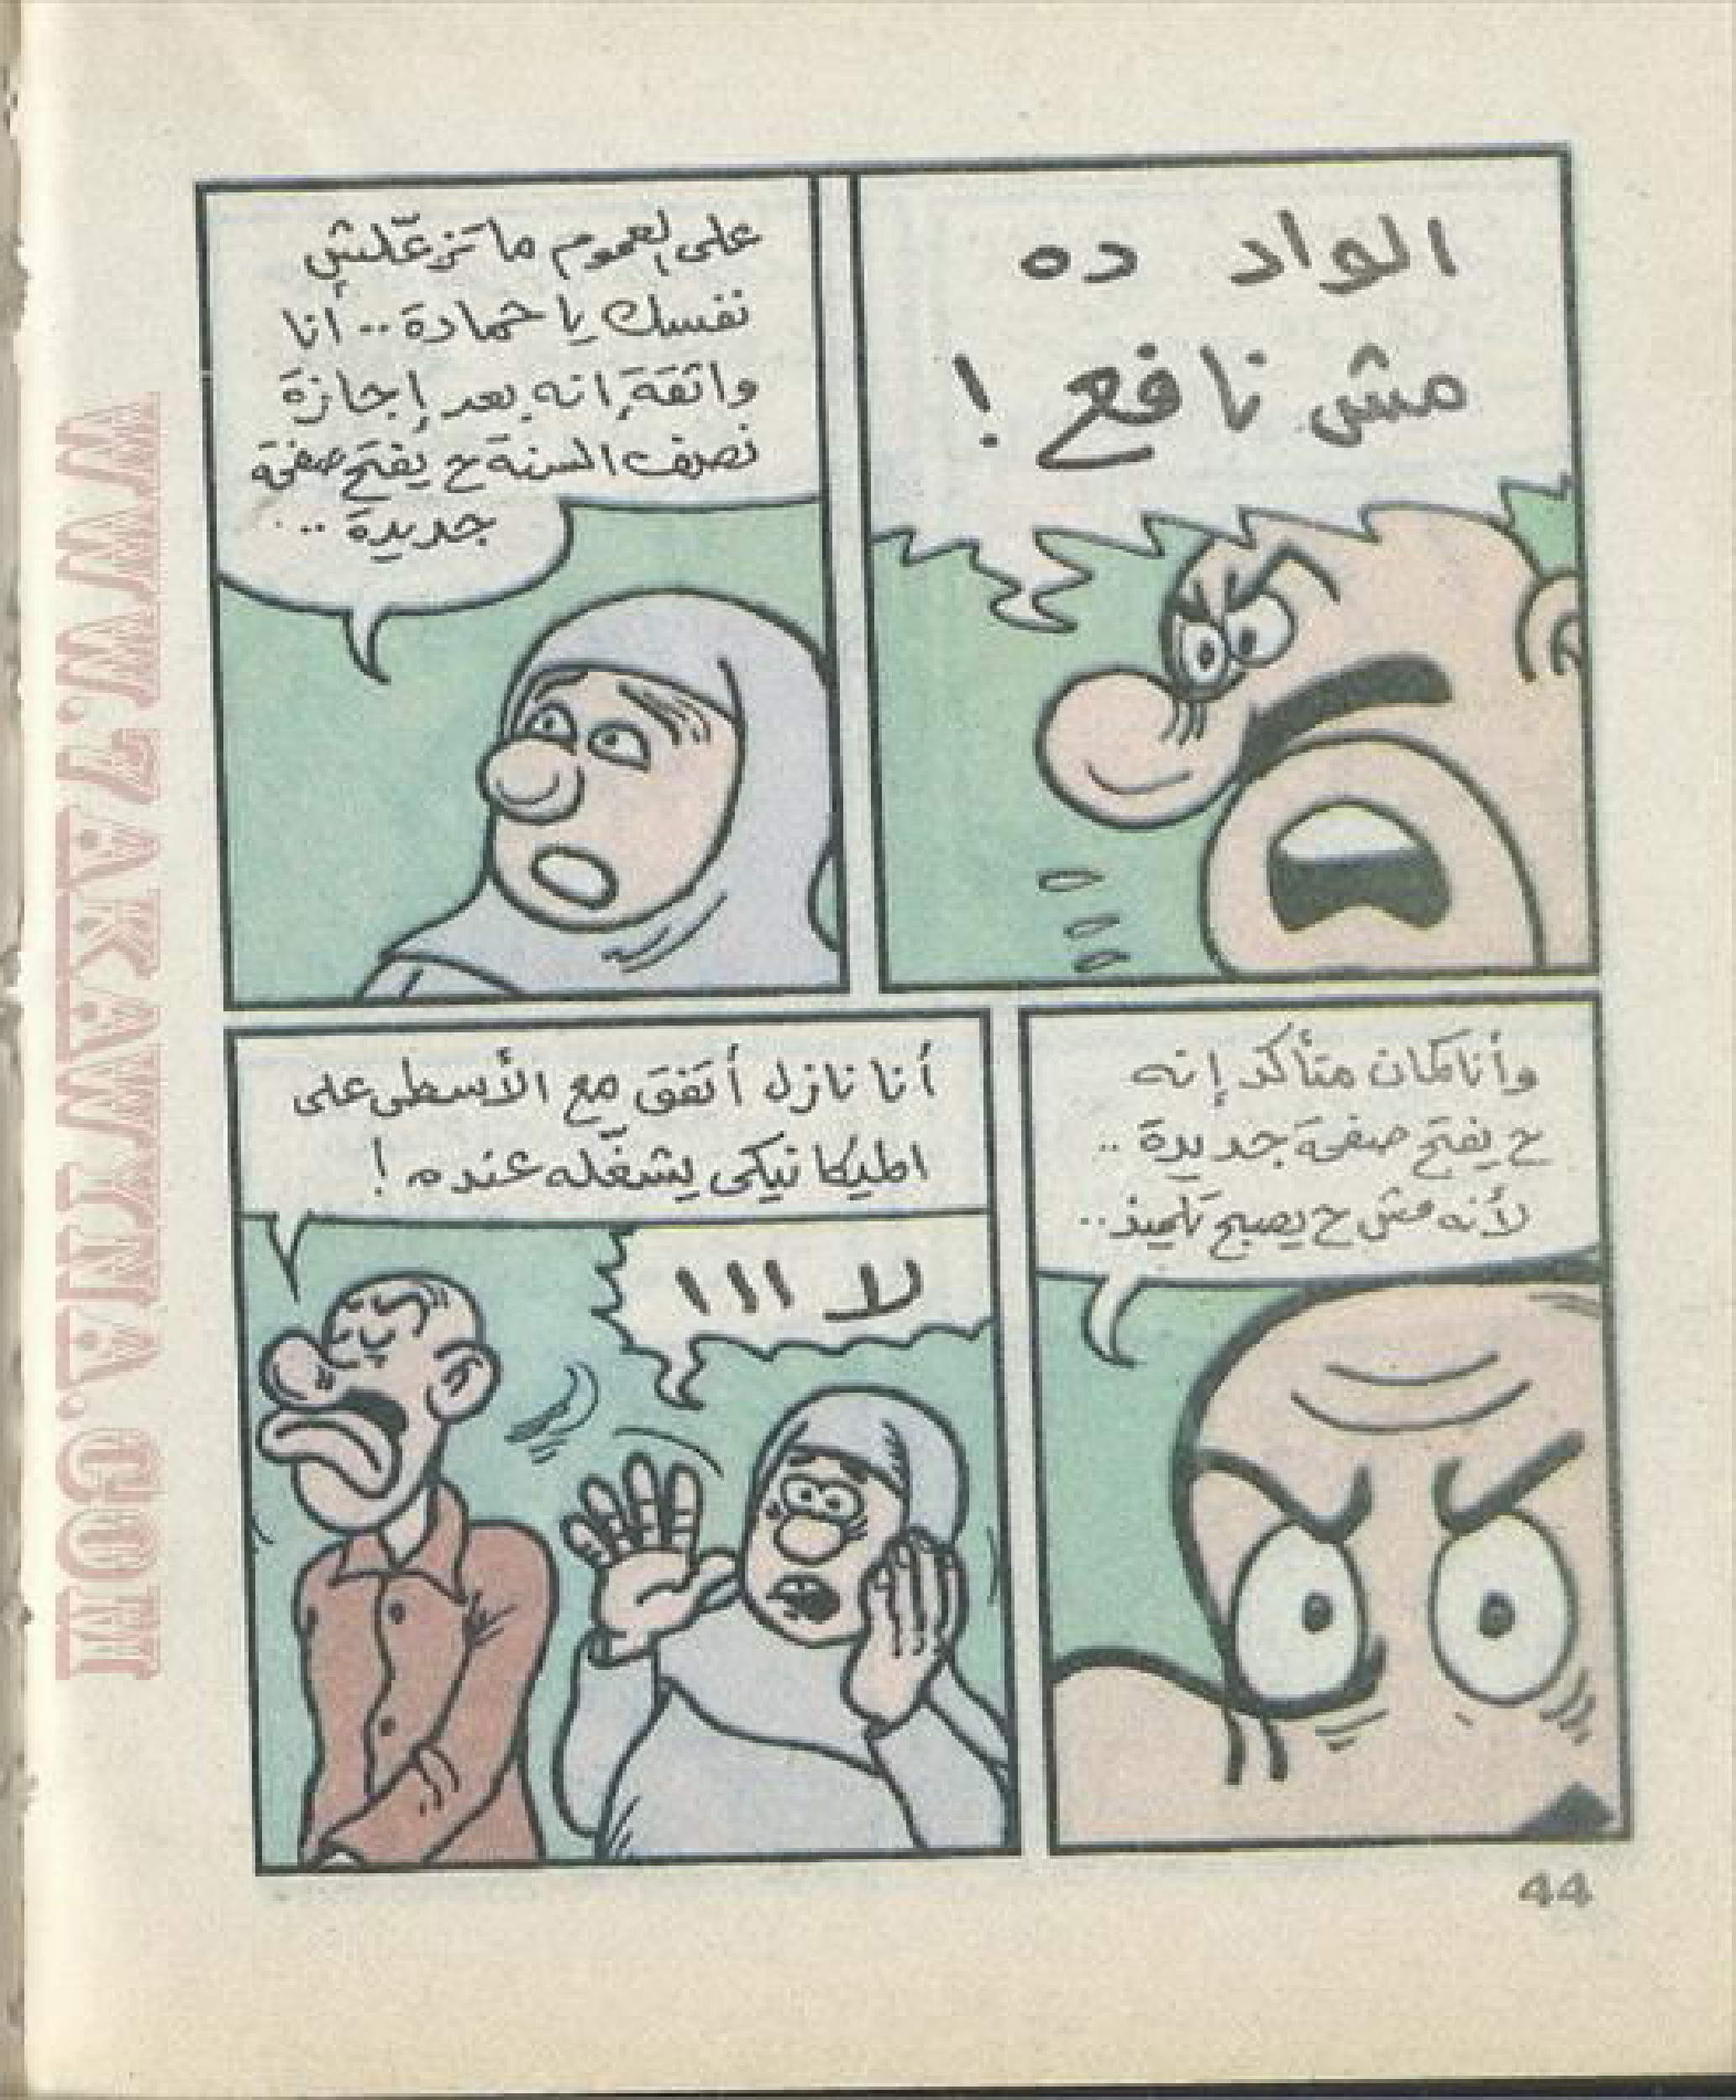 الواد ده
مش نافع !
على العموم ما تزعّلش
نفسك يا حمادة .. أنا
واثقة إنه بعد إجازة
نصف السنة ح يفتح صفحة
جديدة ..
وأنا كمان متأكد إنه
ح يفتح صفحة جديدة ..
لأنه مش ح يصبح تلميذ ..
أنا نازل أتفق مع الأسطى على
الميكانيكى يشغّله عنده !
لا ااا
44
WWW.7AKAWINA.COM